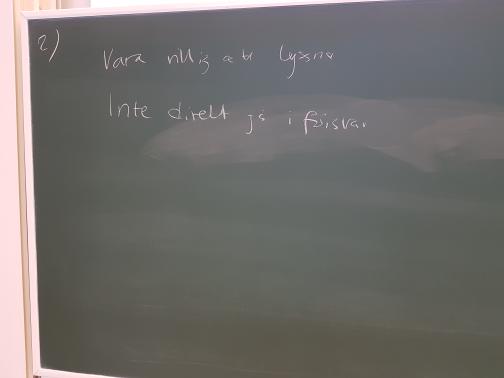 2)
Vara villig att lyssna
Inte direkt gå i försvar